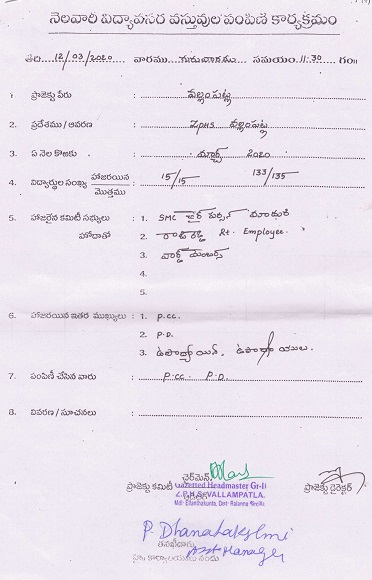 నెలవారీ విద్యావసర వస్తువుల పంపిణీ కార్యక్రమం
తేది 12/03/2020 వారము గురువారము సమయం 11:30 గం॥
1. ప్రాజెక్టు పేరు వల్లంపట్ల
2. ప్రదేశము / ఆవరణ ZPHS వల్లంపట్ల
3. ఏ నెల కొఱకు మార్చ్ 2020
4. విద్యార్థుల సంఖ్య హాజరయిన / మొత్తము 15/15 133/135
5. హాజరైన కమిటీ సభ్యులు : 1. SMC చైర్ పర్సన్ మాధురి
హోదాతో 2. Rt. Employee.
3. వార్డ్ మెంబర్స్
4.
5.
6. హాజరయిన ఇతర ముఖ్యులు : 1. P.CC.
2. P.D.
3. ఉపాధ్యాయిని, ఉపాధ్యాయులు.
7. పంపిణీ చేసిన వారు : P.CC. P.D.
8. వివరణ / సూచనలు :
చైర్‌మెన్
ప్రాజెక్టు కమిటీ Gazetted Headmaster Gr-II ప్రాజెక్టు డైరెక్టర్
Z.P.H.S VALLAMPATLA.
Mdl- Ellanthakunta, Dist- Rajanna Sircilla
P. Dhanalakshmi
తనిఖీదారు
Asst Manager